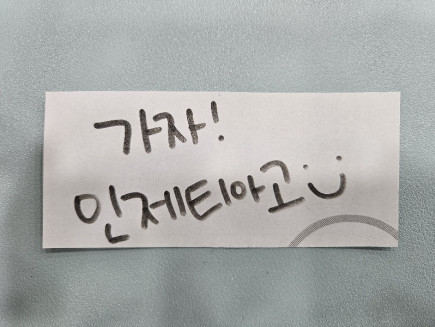 가자!
인제티아고